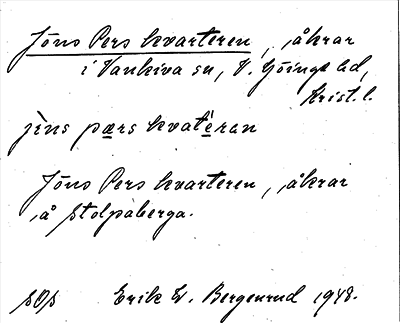 Jöns Pers kvarteren, åkrar
i Vankiva sn, V. Göinge hd,
Krist. l.
jìns pærs kvatéran
Jöns Pers kvarteren, åkrar
å Stolpaberga.
Erik W. Bergenrud 1948.